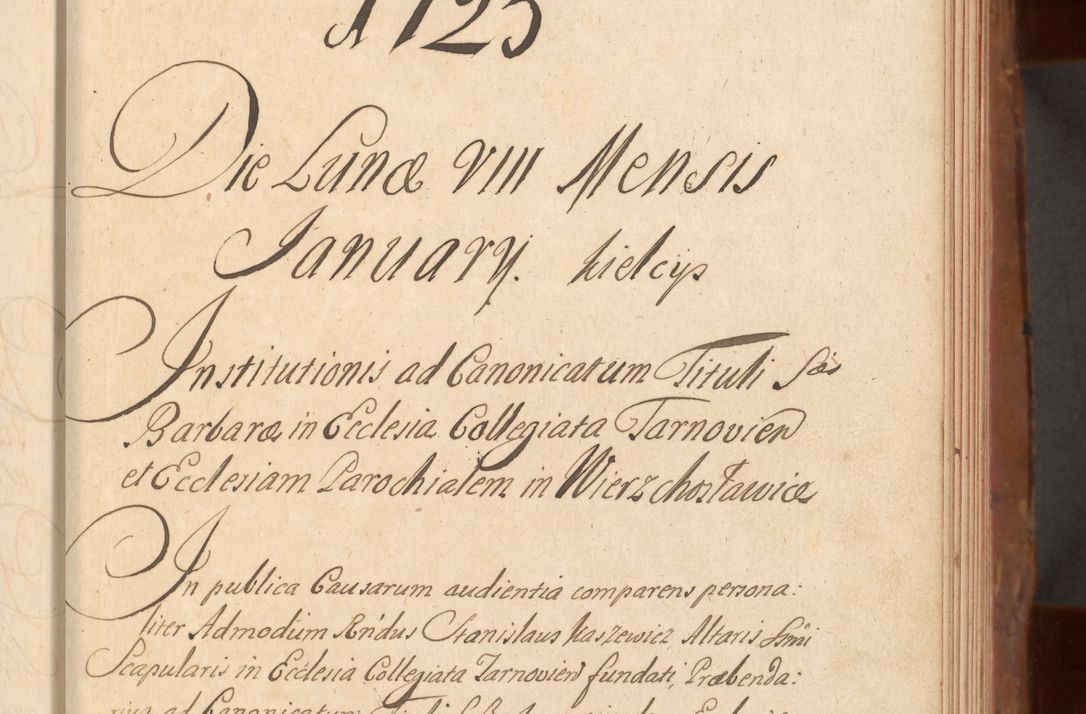 A 1725
Die Lunæ VIII Mensis
January. kielcys
Institutionis ad Canonicatum Tituli Sæ
Barbaræ in Ecclesia Collegiata Tarnovien
et Ecclesiam Parochialem in Wierzchosławice
In publica Causarum audientia comparens persona:
liter Admodum Rndus Stanislaus Kaszewicz, Altaris Ssmi
Scapularis in Ecclesia Collegiata Tarnovien fundati, Præbenda:
rius ad Canonicatum Tituli